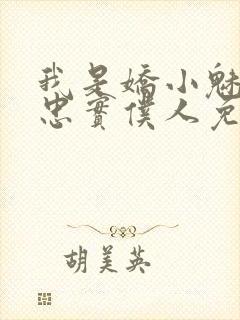 我是嬌小魅
忠實僕人免
胡美英